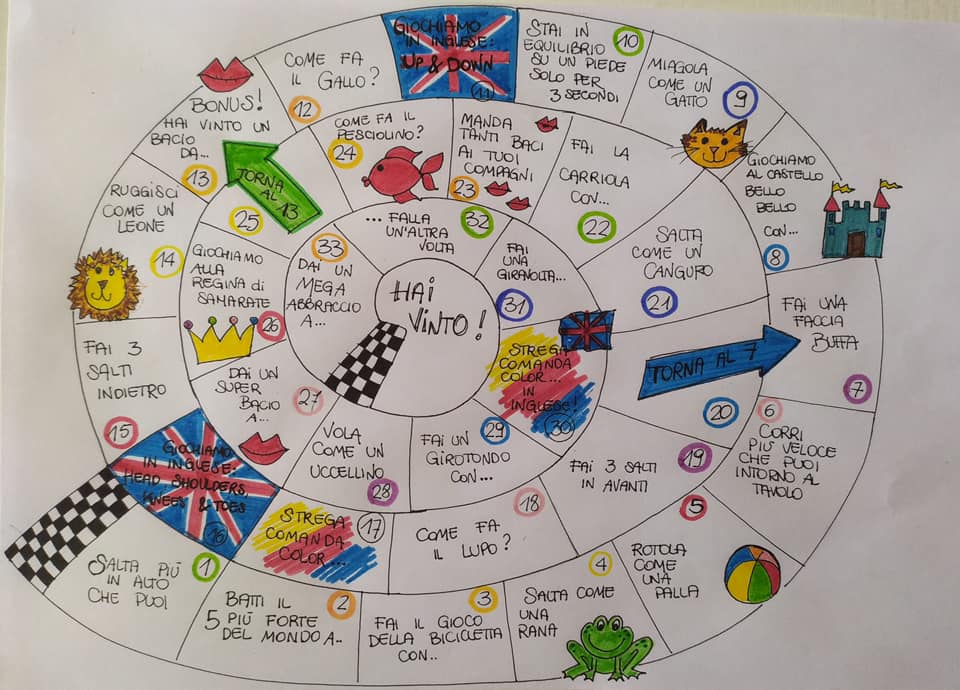 SALTA PIÙ
IN ALTO
CHE PUOI
1
BATTI IL
5 PIÙ FORTE
DEL MONDO A..
2
FAI IL GIOCO
DELLA BICICLETTA
CON..
3
SALTA COME
UNA
RANA
4
ROTOLA
COME
UNA
PALLA
5
6
CORRI
PIÙ VELOCE
CHE PUOI
INTORNO AL
TAVOLO
FAI UNA
FACCIA
BUFFA
7
GIOCHIAMO
AL CASTELLO
BELLO
BELLO
CON...
8
MIAGOLA
COME UN
GATTO
9
STAI IN
EQUILIBRIO
SU UN PIEDE
SOLO PER
3 SECONDI
10
GIOCHIAMO
IN INGLESE:
UP & DOWN
11
COME FA
IL GALLO?
12
BONUS!
HAI VINTO UN
BACIO
DA...
13
RUGGISCI
COME UN
LEONE
14
FAI 3
SALTI
INDIETRO
15
GIOCHIAMO
IN INGLESE:
HEAD SHOULDERS,
KNEES & TOES
16
STREGA
COMANDA
COLOR...
17
COME FA
IL LUPO?
18
FAI 3 SALTI
IN AVANTI
19
TORNA AL 7
20
SALTA
COME UN
CANGURO
21
FAI LA
CARRIOLA
CON...
22
MANDA
TANTI BACI
AI TUOI
COMPAGNI
23
COME FA IL
PESCIOLINO?
24
TORNA
AL 13
25
GIOCHIAMO
ALLA
REGINA di
SAMARATE
26
DAI UN
SUPER
BACIO
A...
27
VOLA
COME UN
UCCELLINO
28
FAI UN
GIROTONDO
CON...
29
STREGA
COMANDA
COLOR...
IN
INGLESE!
30
FAI
UNA
GIRAVOLTA...
31
... FALLA
UN'ALTRA
VOLTA
32
33
DAI UN
MEGA
ABBRACCIO
A...
HAI
VINTO!